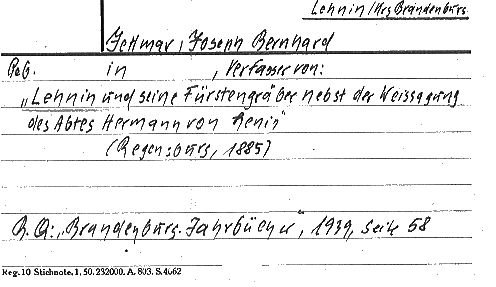 Lehnin/Krs. Brandenburg.
Jettmar, Joseph Bernhard
geb. in , Verfasser von:
„Lehnin und seine Fürstengräber nebst der Weissagung
des Abtes Hermann von Lenin"
(Regensburg, 1885)
B. Q.: „Brandenburg. Jahrbücher", 1939, Seite 58
Reg. 10 Stichnote. 1, 50. 232000. A. 803. S. 4662